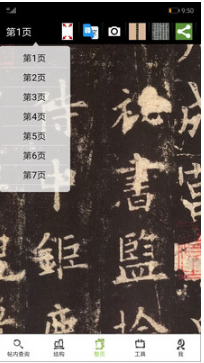 9:50
第1页
第1页
第2页
第3页
第4页
第5页
第6页
第7页
秘
書
監
鉅
帖内查询
结构
整页
工具
我